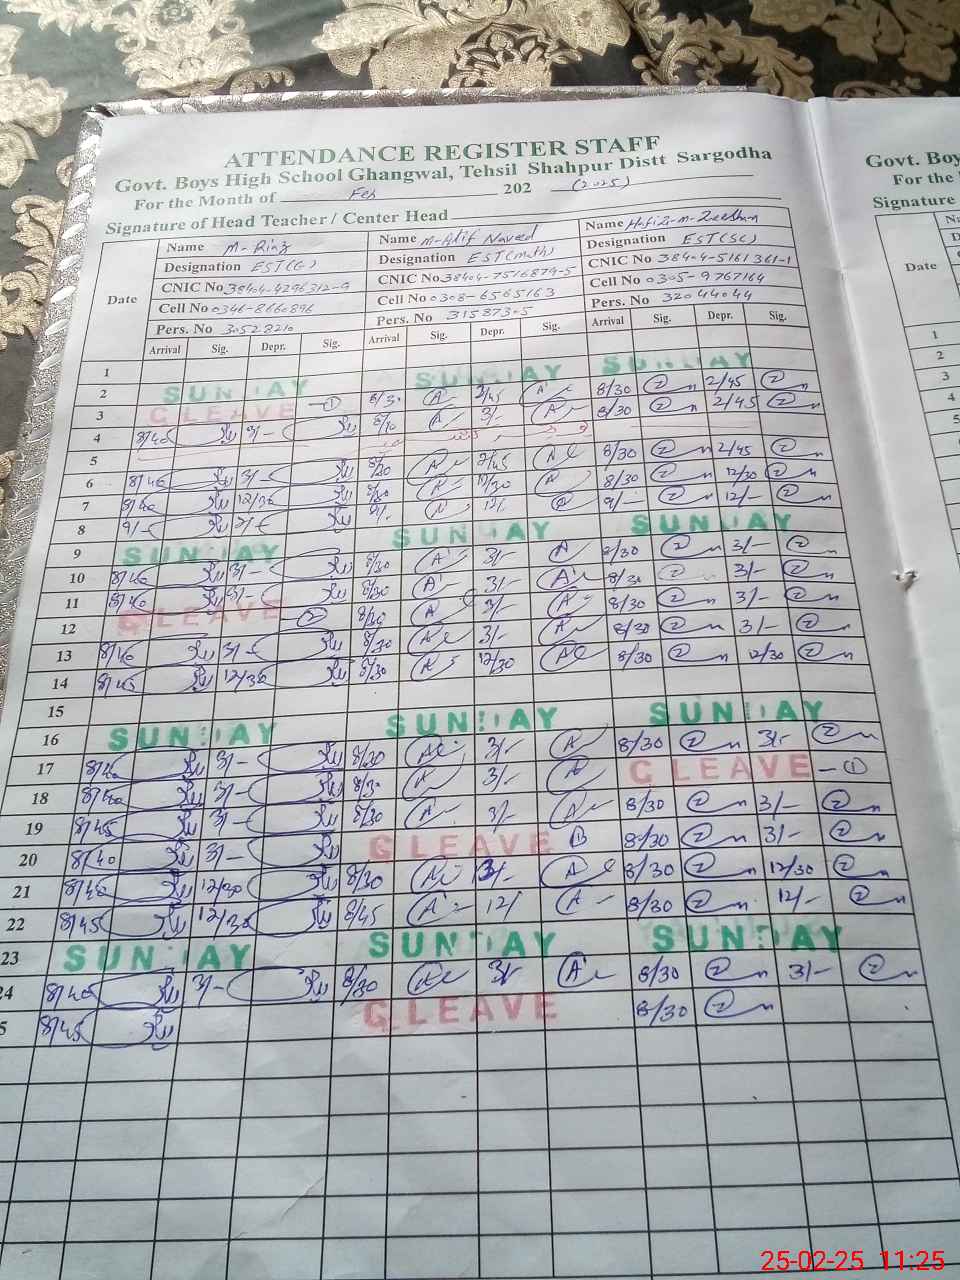 ATTENDANCE REGISTER STAFF
Govt. Boys High School Ghangwal, Tehsil Shahpur Distt Sargodha
For the Month of Feb 202 (2025)
Signature of Head Teacher / Center Head
Date
Name M-Riaz Name M-Atif Naveed Name Hafiz-M-Zeeshan
Designation EST(G) Designation EST(math) Designation EST(SC)
CNIC No 38404-4296312-9 CNIC No. 38404-7516879-5 CNIC No 38404-5161361-1
Cell No 0346-8660896 Cell No 0308-6565163 Cell No 0305-9767164
Pers. No 30528210 Pers. No 31587305 Pers. No 32044044
Arrival Sig. Depr. Sig. Arrival Sig. Depr. Sig. Arrival Sig. Depr. Sig.
1
2 SUNDAY SUNDAY SUNDAY
3 C LEAVE - 1 8/30 2/45 8/30 2/45
4 8/40 3/- 8/30 3/- 8/30 2/45
5
6 8/40 3/- 8/30 2/45 8/30 2/45
7 8/40 12/30 8/30 12/30 8/30 12/30
8 9/- 9/- 12/- 9/- 12/-
9 SUNDAY SUNDAY SUNDAY
10 8/40 3/- 8/30 3/- 8/30 3/-
11 8/40 3/- 8/30 3/- 8/30 3/-
12 C LEAVE - 2 8/30 3/- 8/30 3/-
13 8/40 3/- 8/30 3/- 8/30 3/-
14 8/45 12/30 8/30 12/30 8/30 12/30
15
16 SUNDAY SUNDAY SUNDAY
17 8/40 3/- 8/30 3/- 8/30 3/-
18 8/40 3/- 8/30 3/- C LEAVE - 1
19 8/45 3/- 8/30 3/- 8/30 3/-
20 8/40 3/- C LEAVE 8/30 3/-
21 8/40 12/30 8/30 3/- 8/30 12/30
22 8/45 12/30 8/45 12/ 8/30 12/-
23 SUNDAY SUNDAY SUNDAY
24 8/40 3/- 8/30 3/- 8/30 3/-
5 8/45 C LEAVE 8/30
Govt. Boy
For the
Signature
Date
1
2
3
4
5
25-02-25 11:25